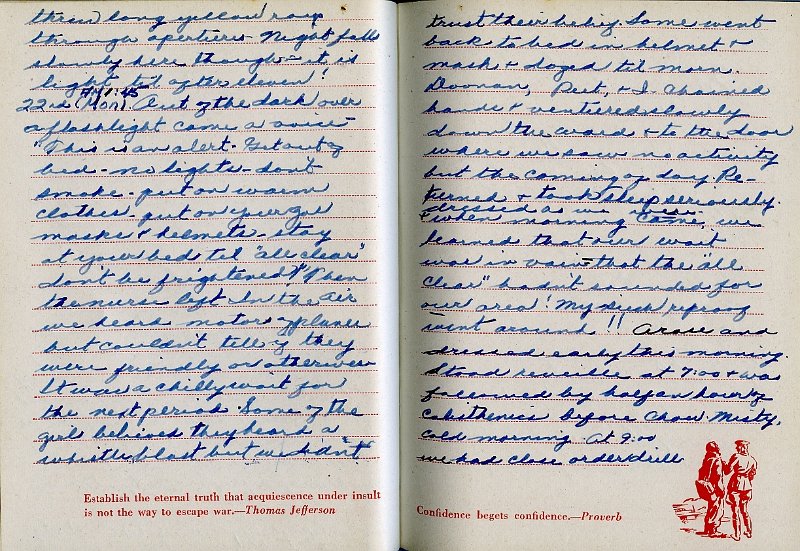 their long yellow rays
through apertures. Night falls
slowly here though - it is
light til after eleven!
AM 1:45
22nd (Mon) Out of the dark over
a flashlight came a voice -
"This is an alert - Get out of
bed - no lights - don't
smoke - put on warm
clothes - put on your gas
masks & helmets - stay
at your bed til "all clear"
don't be frightened!" Then
the nurse left. In the air
we heard motor of planes
but couldn't tell if they
were friendly or otherwise
It was a chilly wait for
the next period. Some of the
girls believed they heard a
whistle blast but we didn't
Establish the eternal truth that acquiescence under insult
is not the way to escape war.—Thomas Jefferson
trust their belief. Some went
back to bed in helmet &
mask & dozed til morn.
Doonan, Peet, & I chained
hands & ventured slowly
down the ward & to the door
where we saw no activity
but the coming of day. Re-
turned & took sleep seriously.
& when morning came, we
learned that our wait
was in vain - that the "all
clear" hadn't sounded for
our area! My
went around!! Arose and
dressed early this morning.
Stood reveille at 7:00 & was
followed by half an hour of
calisthenics before chow. Misty,
cold morning. At 9:00
we had close order drill
Confidence begets confidence.—Proverb